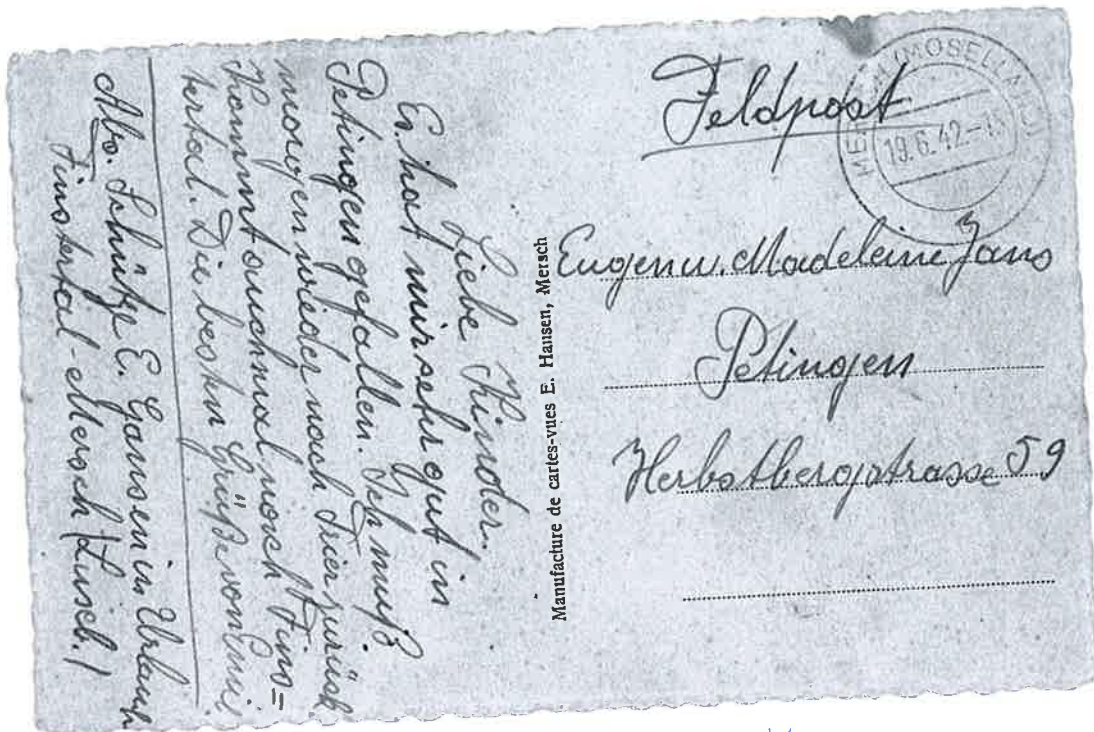 Feldpost
(MOSELLAND)
19.6.42.-15
Eugen u. Madeleine Jans
Petingen
Herbstbergstrasse 59
Manufacture de cartes-vues E. Hausen, Mersch
Liebe Kinder.
Es hat mir sehr gut in
Petingen gefallen. Ich muß
morgen wieder nach Trier zurück
Kommt auch mal nach Fins=
tertal. Die besten Grüße von Emil
Abs. Schütze E. Gansen in Urlaub
Finstertal-Mersch (Luxcb.)